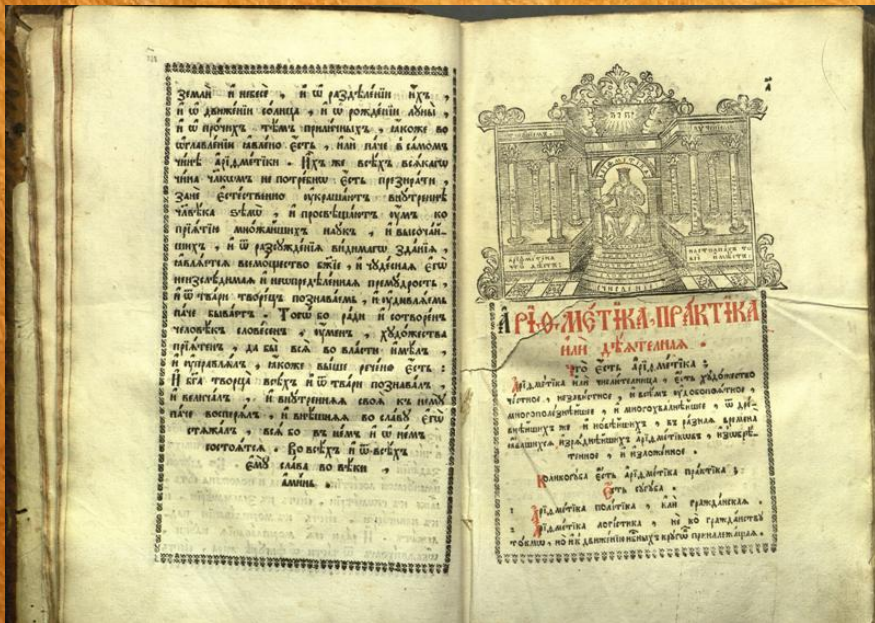 землѝ и҆ небесѐ , и҆ ѡ҆ раздѣле́нїи и҆́хъ ,
и҆ ѡ҆ движе́нїи со́лнца , и҆ ѡ҆ рожде́нїи лꙋны̀ ,
и҆ ѡ҆ про́чихъ тѣ̑мъ прили́чныхъ , ꙗ҆́коже во
ѡ҆главле́нїи ꙗ҆вле́но є҆́сть , и҆лѝ па́че в само́мъ
чи́нѣ а҆рїѳме́тїки . и҆́хъ же всѣ́хъ всѧ́кагѡ
чи́на чл҃кѡмъ не потре́бнѡ є҆́сть презира́ти ,
занѐ є҆сте́ственнѡ ᲂу҆краша́ютъ внꙋ́треннѣ
чл҃вѣ́ка ᲂу҆мъ ко
прїѧ́тїю мно́жайшихъ наꙋ́къ , и҆ высоча́й-
шихъ , и҆ ѿ разсꙋжде́нїѧ ви́димагѡ зда́нїѧ ,
ꙗ҆влѧ́етсѧ всемогꙋ́щество бж҃їе , и҆ чꙋде́снаѧ є҆гѡ̀
неизслѣ́димаѧ и҆ неѡпредѣле́ннаѧ премꙋ́дрость ,
и҆ ѿ тва́ри творе́цъ познава́емь , и҆ ᲂу҆дивлѧ́емь
па́че быва́етъ . Тогѡ́ бо ра́ди и҆ сотворе́нъ
человѣ́къ слове́сенъ , ᲂу҆́менъ , хꙋдо́жества
прїѧ́тенъ , да бы всѧ̑ во вла́сти и҆мѣ́лъ ,
и҆ ᲂу҆правлѧ́лъ , ꙗ҆́коже вы́ше рече́но є҆́сть :
И҆ бг҃а творца̀ всѣ́хъ и҆ ѿ тва́ри познава́лъ ,
и҆ велича́лъ , и҆ внꙋ́треннѧѧ своѧ̑ къ немꙋ̀
па́че восперѧ́лъ , и҆ внѣ́шнѧѧ во сла́вꙋ є҆гѡ̀
стѧжа́лъ , всѧ̑ бо въ не́мъ и҆ ѡ҆ не́мъ
состоѧ́тсѧ . Во всѣ́хъ и҆ ѿ всѣ́хъ
є҆мꙋ̀ сла́ва во вѣ́ки ,
а҆ми́нь .
а҃
А҆РІѲМЕ́ТЇКА ПРА́КТЇКА
и҆лѝ дѣ́ѧтелнаѧ .
Что̀ є҆́сть а҆рїѳме́тїка ;
А҆рїѳме́тїка и҆лѝ числи́телница , є҆́сть хꙋдо́жество
че́стное , незави́стное , и҆ всѣ̑мъ ᲂу҆добопоѧ́тное ,
многополе́знѣйшее , и҆ многохва́лнѣйшее , ѿ дре́-
внѣйшихъ же и҆ новѣ́йшихъ , въ ра̑знаѧ времена̀
ꙗ҆ви́вшихсѧ и҆зрѧ́днѣйшихъ а҆рїѳме́тїкѡвъ , и҆з̾ѡбрѣ́-
тенное , и҆ и҆зложе́нное .
Коликогꙋ́ба є҆́сть а҆рїѳме́тїка пра́ктїка ;
Є҆́сть сꙋгꙋ́ба .
А҆рїѳме́тїка поли́тїка , и҆лѝ гражда́нскаѧ .
А҆рїѳме́тїка логи́стїка , не ко гражда́нствꙋ
то́кмѡ , но и҆ къ движе́нїю нбⷭ҇ныхъ крꙋгѡ́въ принадлежа́щаѧ .